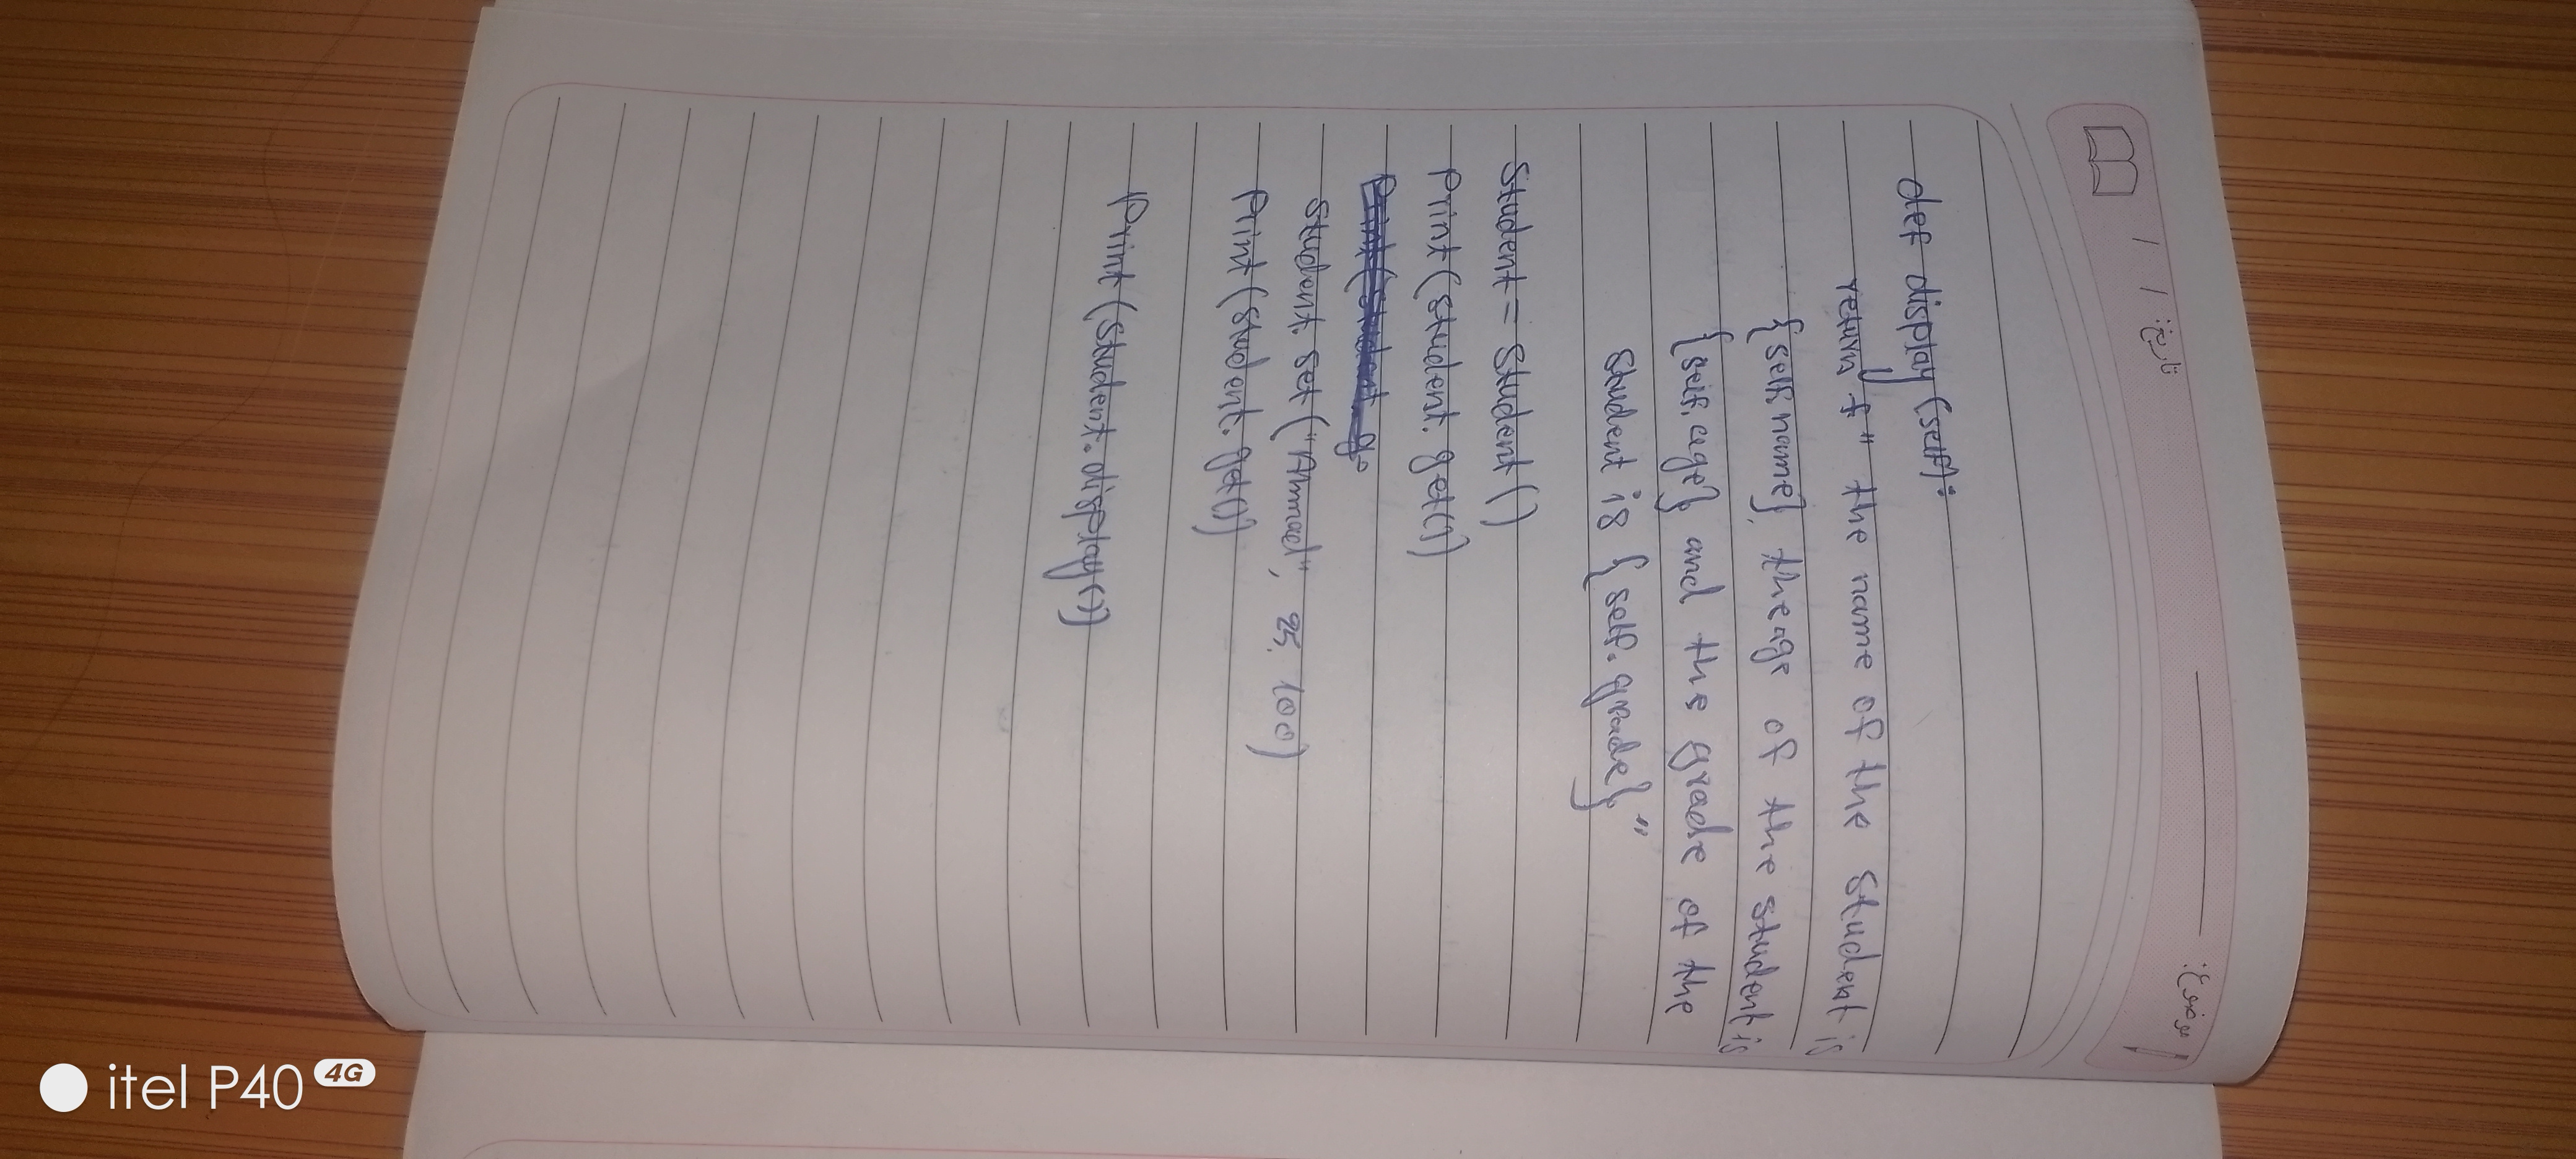 تاریخ: / /
موضوع:
def display (self):
return f" the name of the student is
{self name}, the age of the student is
{self. age} and the grade of the
student is {self. grade}"
Student = Student ()
Print (student. get())
Student. set ("Ahmad", 25, 100)
Print (student. get())
Print (student. display ())
itel P40 4G